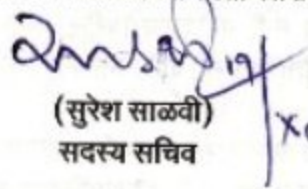 (सुरेश साळवी)
सदस्य सचिव